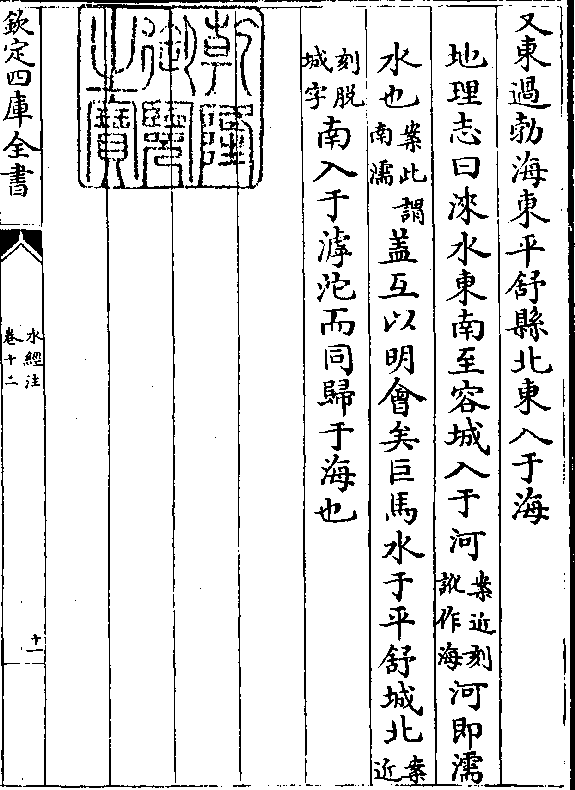 又東過勃海東平舒縣北東入于海
地理志曰淶水東南至容城入于河案近刻訛作海河即濡
水也案此謂南濡盖互以明會矣巨馬水于平舒城北案近
刻脱城字南入于滹沱而同歸于海也
乾隆御覽之寶
欽定四庫全書
水經注
卷十二
十一